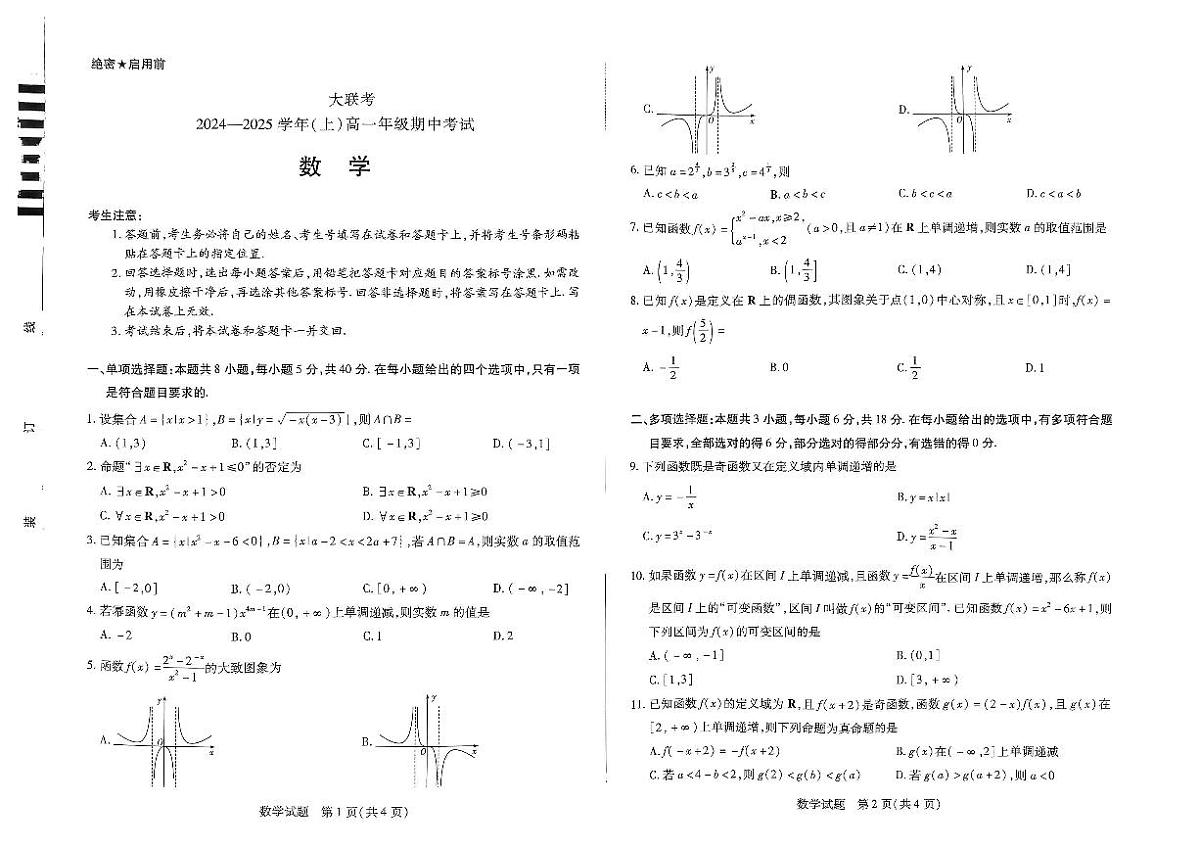 绝密★启用前
大联考
2024—2025学年(上)高一年级期中考试
数 学
考生注意:
1.答题前,考生务必将自己的姓名、考生号填写在试卷和答题卡上,并将考生号条形码粘
贴在答题卡上的指定位置.
2.回答选择题时,选出每小题答案后,用铅笔把答题卡对应题目的答案标号涂黑.如需改
动,用橡皮擦干净后,再选涂其他答案标号.回答非选择题时,将答案写在答题卡上.写
在本试卷上无效.
3.考试结束后,将本试卷和答题卡一并交回.
一、单项选择题:本题共8小题,每小题5分,共40分.在每小题给出的四个选项中,只有一项
是符合题目要求的.
1.设集合A={x|x>1},B={x|y=√(-x(x-3))},则A∩B=
A.(1,3) B.(1,3] C.[-1,3] D.(-3,1]
2.命题“∃x∈R,x²-x+1≤0”的否定为
A.∃x∈R,x²-x+1>0 B.∃x∈R,x²-x+1≥0
C.∀x∈R,x²-x+1>0 D.∀x∈R,x²-x+1≥0
3.已知集合A={x|x²-x-6<0},B={x|a-2<x<2a+7},若A∩B=A,则实数a的取值范
围为
A.[-2,0] B.(-2,0) C.[0,+∞) D.(-∞,-2]
4.若幂函数y=(m²+m-1)x^(4m-1)在(0,+∞)上单调递减,则实数m的值是
A.-2 B.0 C.1 D.2
5.函数f(x)=(2^x-2^(-x))/(x²-1)的大致图象为
A. y O x B. y O x
数学试题 第1页(共4页)
线
订
装
C. y O x D. y O x
6.已知 ,则
A.c<b<a B.a<b<c C.b<c<a D.c<a<b
7.已知函数f(x)={x²-ax,x≥2, a^(x-1),x<2 (a>0,且a≠1)在R上单调递增,则实数a的取值范围是
A.(1,4/3) B.(1,4/3] C.(1,4) D.(1,4]
8.已知f(x)是定义在R上的偶函数,其图象关于点(1,0)中心对称,且x∈[0,1]时,f(x)=
x-1,则f(5/2)=
A.-1/2 B.0 C.1/2 D.1
二、多项选择题:本题共3小题,每小题6分,共18分.在每小题给出的选项中,有多项符合题
目要求,全部选对的得6分,部分选对的得部分分,有选错的得0分.
9.下列函数既是奇函数又在定义域内单调递增的是
A.y=-1/x B.y=x|x|
C.y=3^x-3^(-x) D.y=(x²-x)/(x-1)
10.如果函数y=f(x)在区间I上单调递减,且函数y=f(x)/x在区间I上单调递增,那么称f(x)
是区间I上的“可变函数”,区间I叫做f(x)的“可变区间”.已知函数f(x)=x²-6x+1,则
下列区间为f(x)的可变区间的是
A.(-∞,-1] B.(0,1]
C.[1,3] D.[3,+∞)
11.已知函数f(x)的定义域为R,且f(x+2)是奇函数,函数g(x)=(2-x)f(x),且g(x)在
[2,+∞)上单调递增,则下列命题为真命题的是
A.f(-x+2)=-f(x+2) B.g(x)在(-∞,2]上单调递减
C.若a<4-b<2,则g(2)<g(b)<g(a) D.若g(a)>g(a+2),则a<0
数学试题 第2页(共4页)